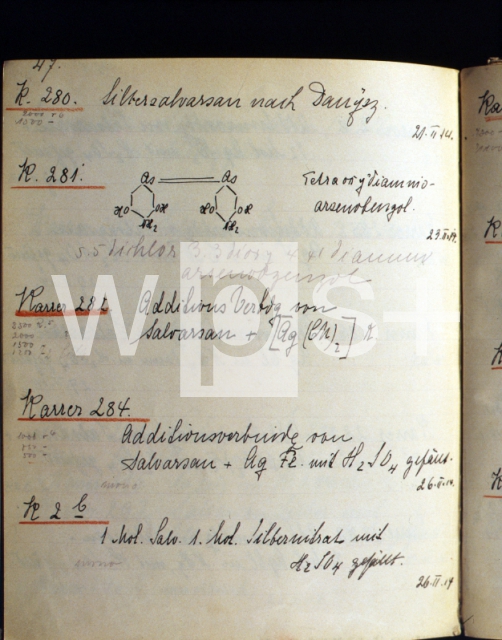 47.
K. 280. Silbersalvarsan nach Danysz.
21.II.14.
K. 281.
As As
HO OH HO OH
NH2 NH2
Tetraoxydiamino-
arsenobenzol.
23.II.14.
5.5 dichlor 3.3 dioxy 4.4 diamino
arsenobenzol
Karrer 283 Additions Verbdg von
Salvarsan + [Ag (CN)2] K.
2000
1500
Karrer 284.
Additionsverbindg von
Salvarsan + Ag mit H2SO4 gefällt.
26.II.14.
K 2 b
1 Mol. Salv. 1. Mol. Silbernitrat mit
H2SO4 gefällt.
26.II.14
wps+